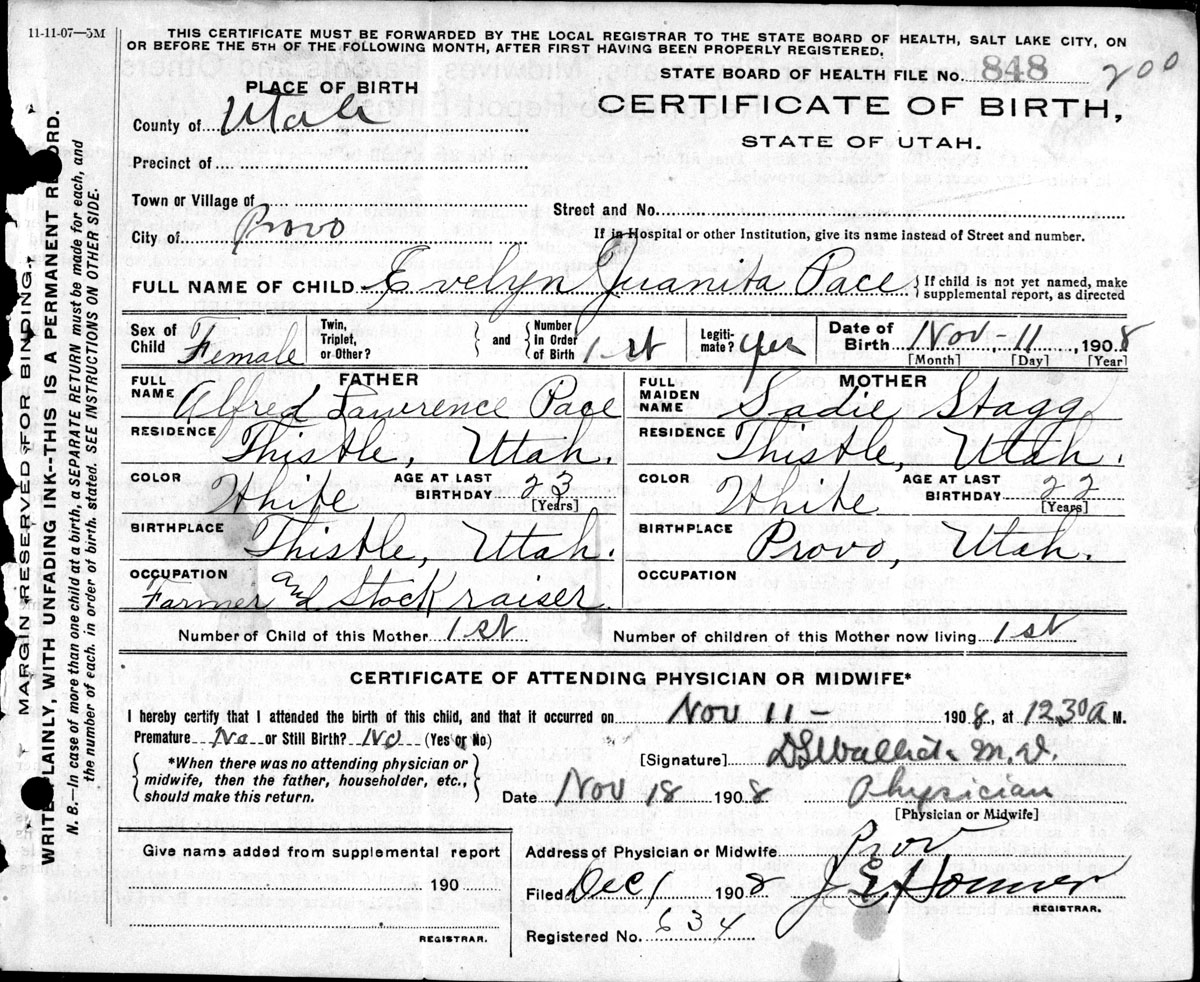 11-11-07—5M
THIS CERTIFICATE MUST BE FORWARDED BY THE LOCAL REGISTRAR TO THE STATE BOARD OF HEALTH, SALT LAKE CITY, ON
OR BEFORE THE 5TH OF THE FOLLOWING MONTH, AFTER FIRST HAVING BEEN PROPERLY REGISTERED.
STATE BOARD OF HEALTH FILE No. 848 200
PLACE OF BIRTH
CERTIFICATE OF BIRTH,
County of Utah
STATE OF UTAH.
Precinct of
Town or Village of
Street and No.
City of Provo
If in Hospital or other Institution, give its name instead of Street and number.
FULL NAME OF CHILD Evelyn Juanita Pace { If child is not yet named, make
supplemental report, as directed
Sex of Child Female Twin, Triplet, or Other? } and { Number in Order of Birth 1st Legiti-mate? yes Date of Birth Nov - 11, 1908
[Month] [Day] [Year]
FATHER
MOTHER
FULL NAME Alfred Lawrence Pace
FULL MAIDEN NAME Sadie Stagg
RESIDENCE Thistle, Utah.
RESIDENCE Thistle, Utah.
COLOR White AGE AT LAST BIRTHDAY 23 [Years]
COLOR White AGE AT LAST BIRTHDAY 22 [Years]
BIRTHPLACE Thistle, Utah.
BIRTHPLACE Provo, Utah.
OCCUPATION Farmer and Stock raiser.
OCCUPATION
Number of Child of this Mother 1st Number of children of this Mother now living 1st
CERTIFICATE OF ATTENDING PHYSICIAN OR MIDWIFE*
I hereby certify that I attended the birth of this child, and that it occurred on Nov 11 - 1908, at 12 30 a M.
Premature No or Still Birth? No (Yes or No)
[Signature] M.D.
*When there was no attending physician or
midwife, then the father, householder, etc.,
should make this return.
Date Nov 18 1908 Physician
[Physician or Midwife]
Give name added from supplemental report
190
REGISTRAR.
Address of Physician or Midwife Prov
Filed Dec 1 1908
REGISTRAR.
Registered No. 634
MARGIN RESERVED FOR BINDING.
WRITE PLAINLY, WITH UNFADING INK--THIS IS A PERMANENT RECORD.
N. B.—In case of more than one child at a birth, a SEPARATE RETURN must be made for each, and
the number of each, in order of birth, stated. SEE INSTRUCTIONS ON OTHER SIDE.